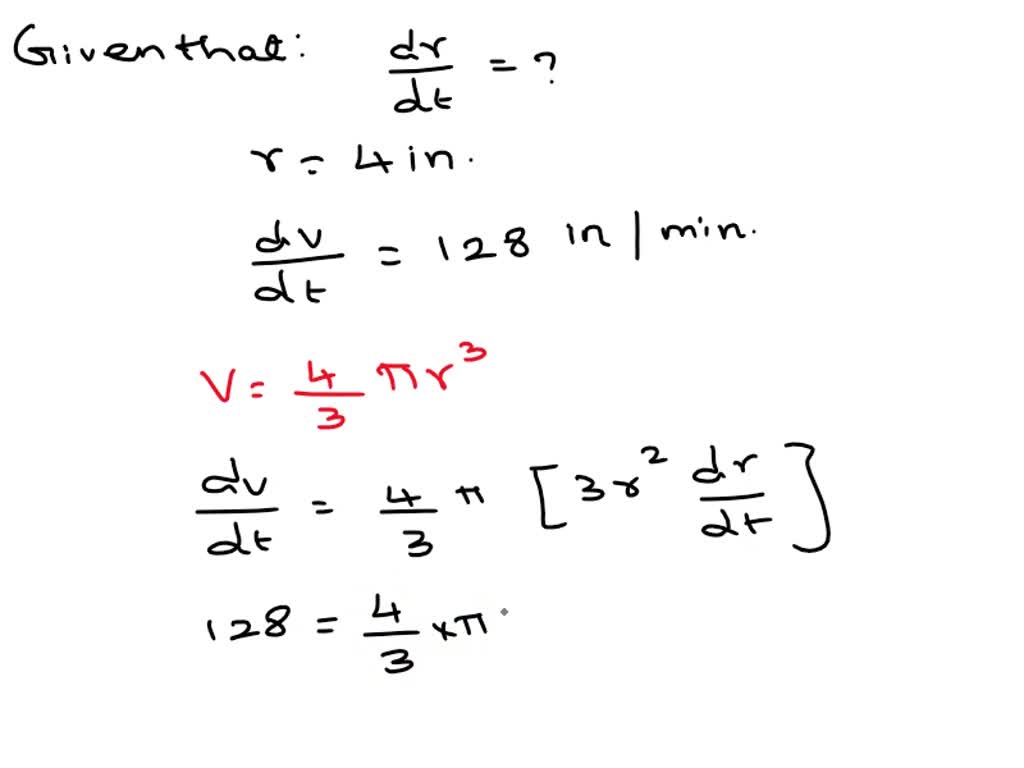 Given that: dr/dt = ?
r = 4 in.
dv/dt = 128 in / min.
V = 4/3 πr³
dv/dt = 4/3 π [3r² dr/dt]
128 = 4/3 × π